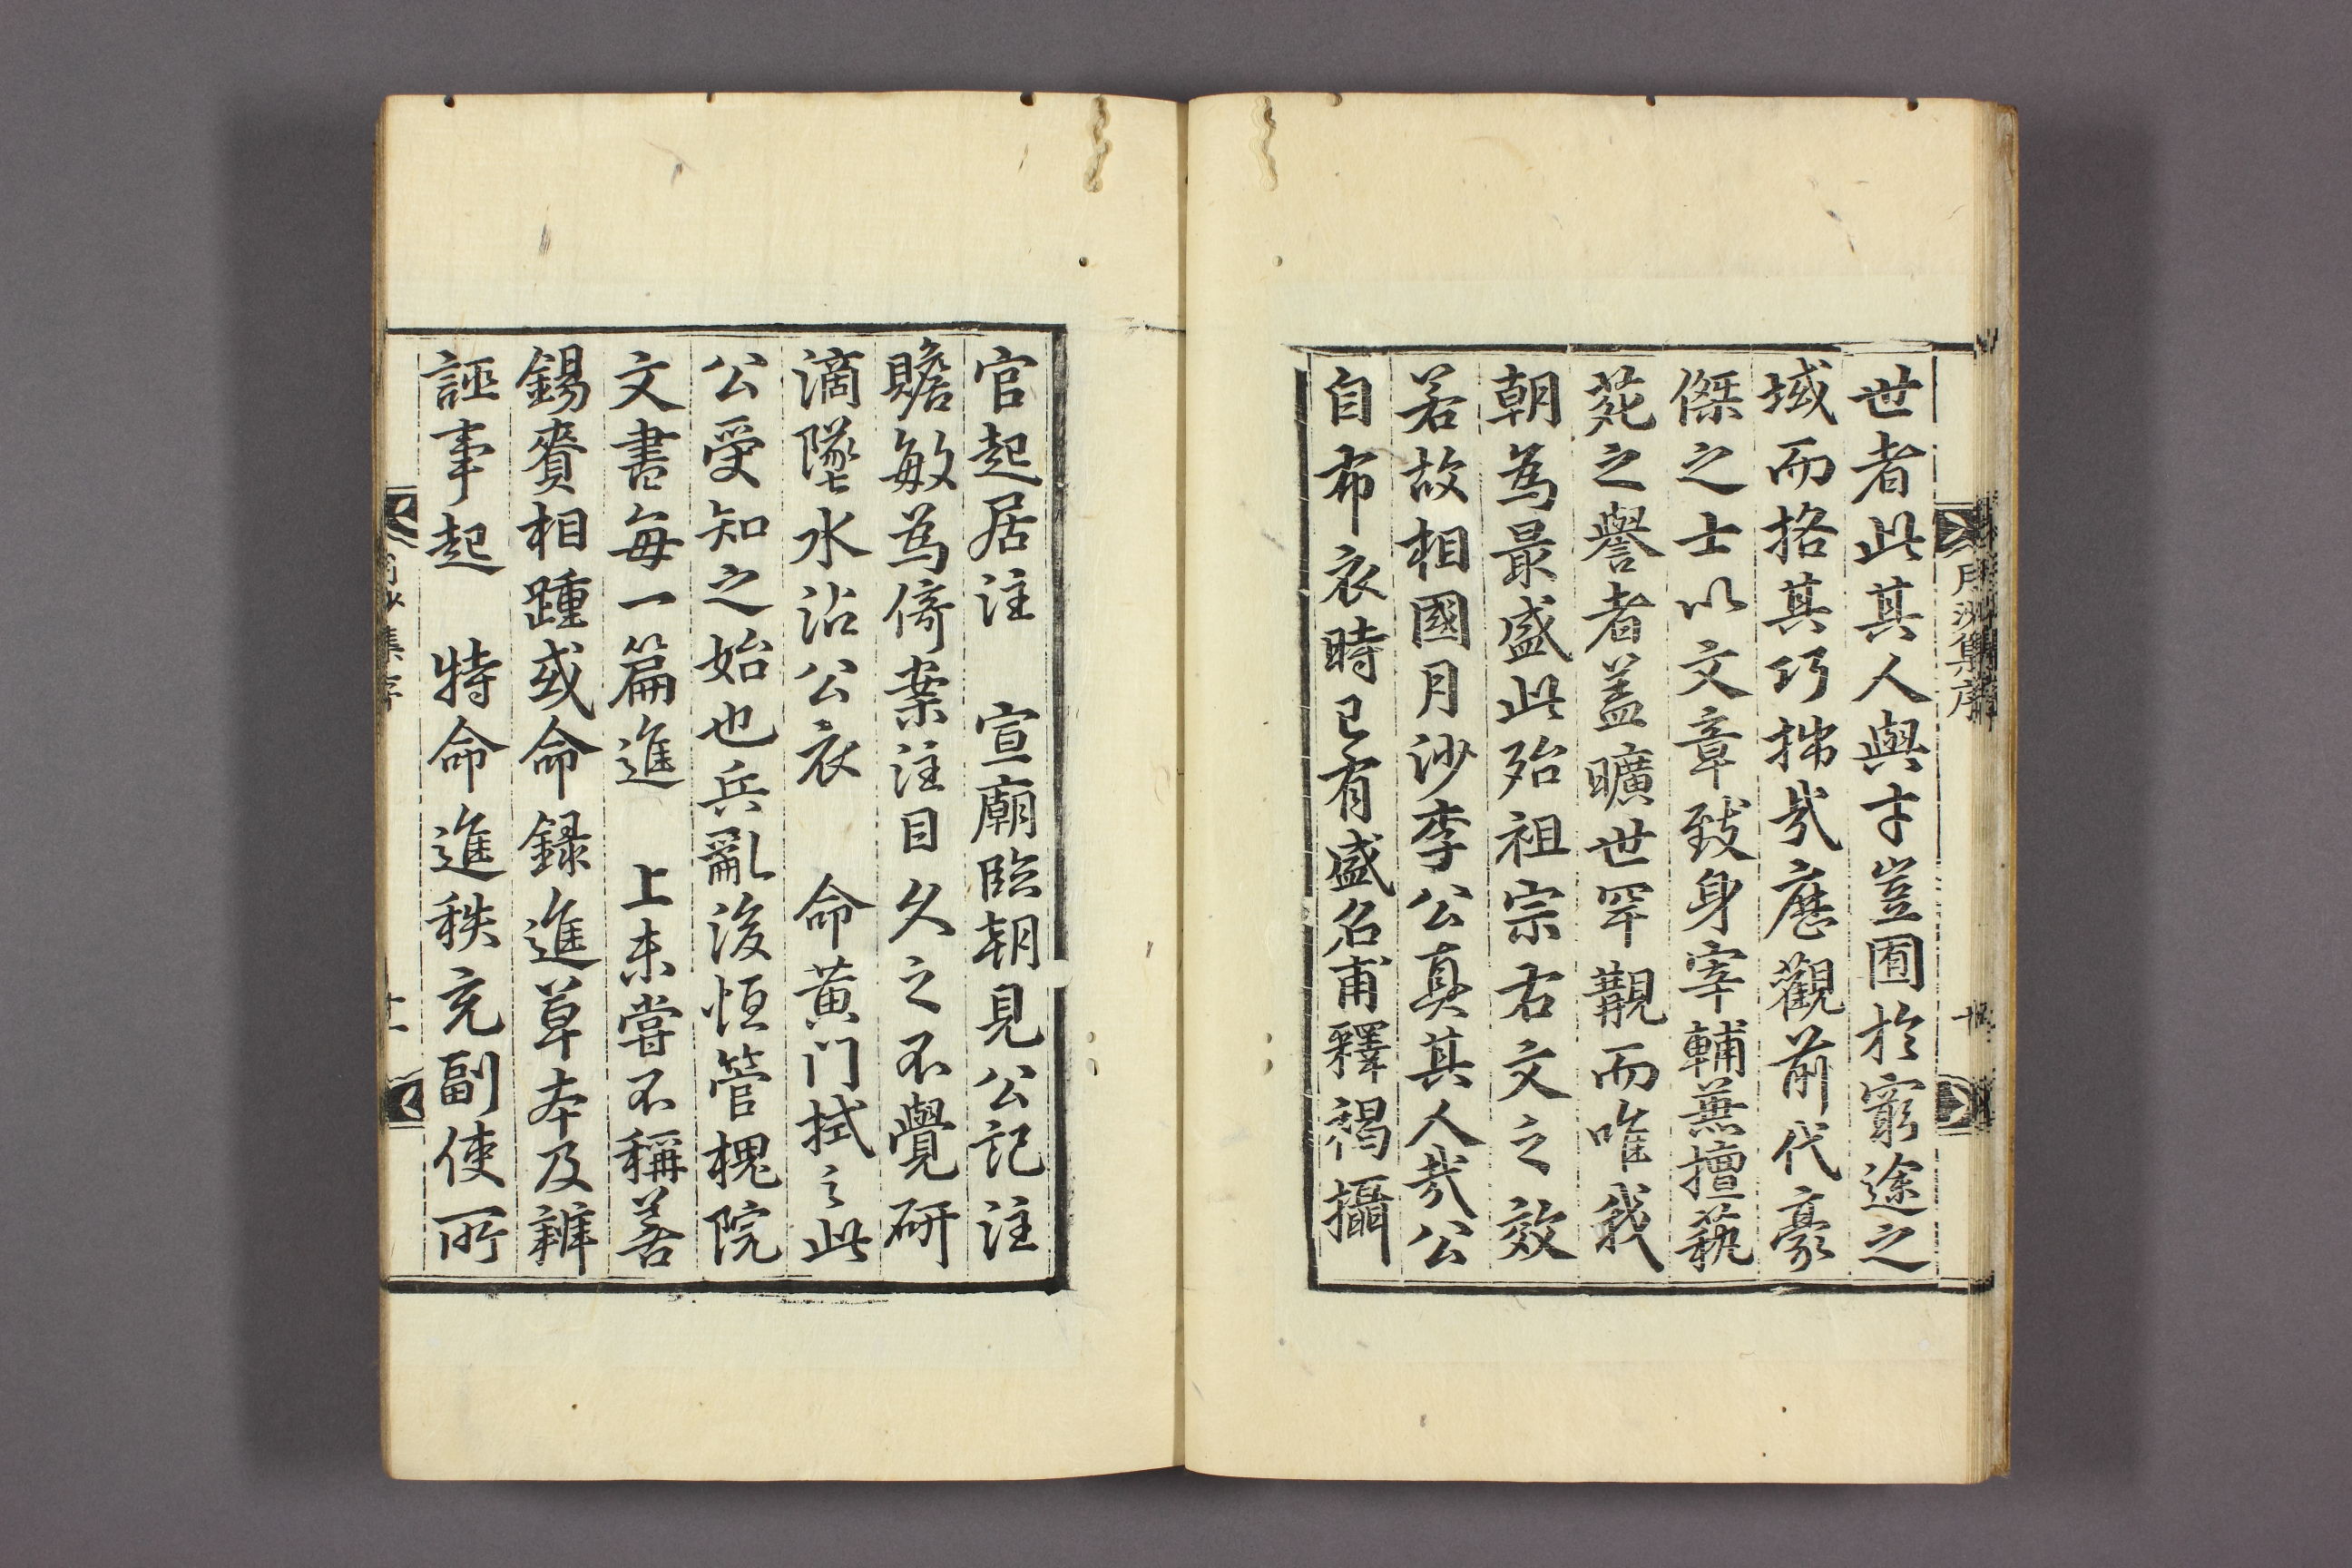 月沙集序
十
世者此其人與才豈囿於窮途之
域而挌其巧拙哉歷觀前代豪
傑之士以文章致身宰輔兼擅藝
苑之譽者盖曠世罕覯而唯我
朝為最盛此殆祖宗右文之效
若故相國月沙李公真其人哉公
自布衣時已有盛名甫釋褐攝
官起居注 宣廟臨朝見公記注
贍敏為倚案注目久之不覺研
滴墜水沾公衣 命黄门拭之此
公受知之始也兵亂後恒管槐院
文書每一篇進 上未嘗不稱善
錫賚相踵或命録進草本及辨
誣事起 特命進秩充副使所
集序
十一